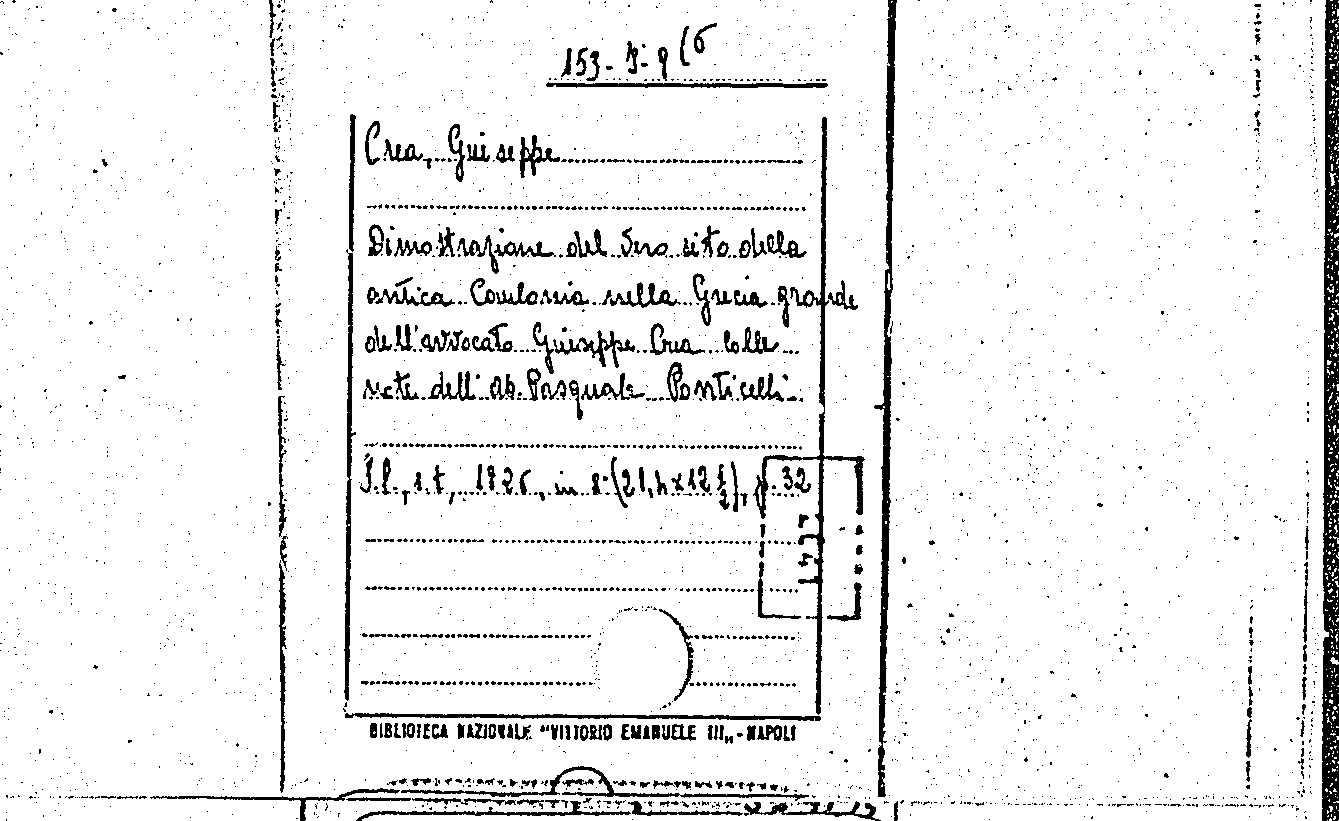 153-J-8 (6
Crea, Guiseppe
Dimostrazione del vero sito della
antica Caulonia nella Grecia grande
dell'avvocato Guiseppe Crea colle
note dell'Ab. Pasquale Ponticelli.
S.l., s.t., 1826, in 8° (21,4x12 1/2), p. 32
BIBLIOTECA NAZIONALE "VITTORIO EMANUELE III„ - NAPOLI